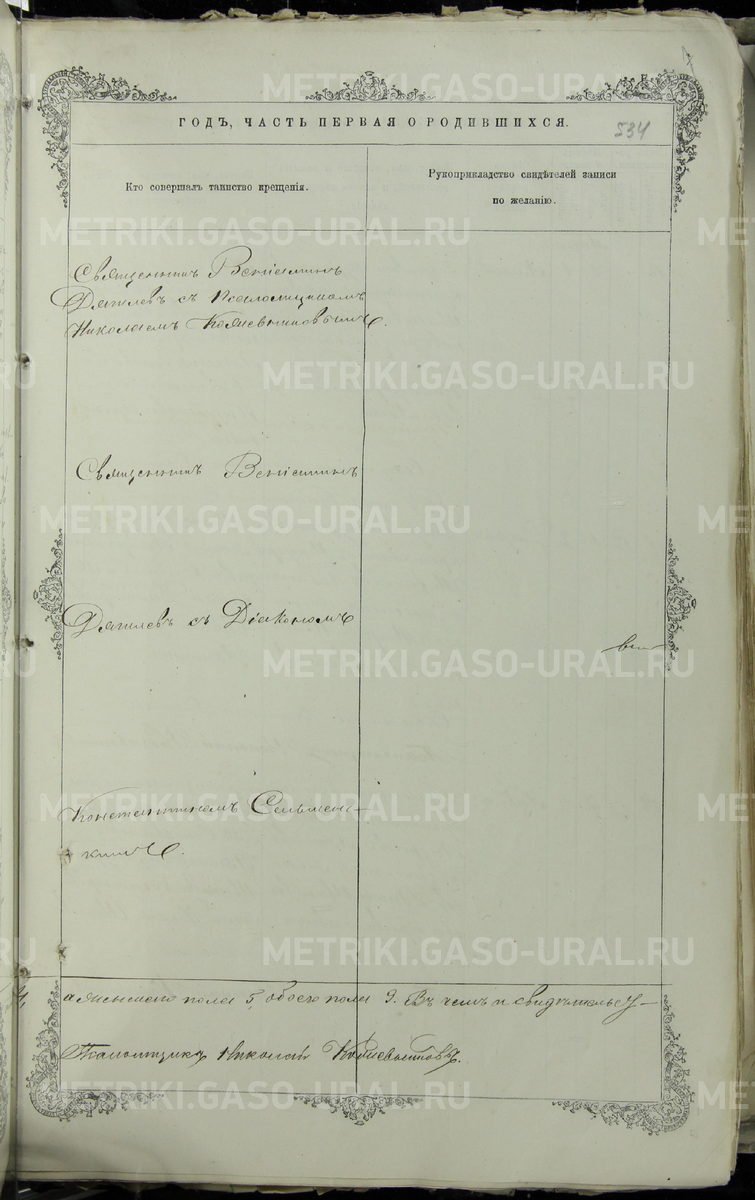 ГОДЪ, ЧАСТЬ ПЕРВАЯ О РОДИВШИХСЯ.
534
Кто совершалъ таинство крещенія.
Рукоприкладство свидѣтелей записи
по желанію.
Священникъ Веніаминъ
Дягилевъ съ Псаломщикомъ
Николаемъ
Священникъ Веніаминъ
Дягилевъ съ Діакономъ
Константиномъ Сельменс-
кимъ.
а женскаго пола 5, обоего пола 9. Въ чемъ и свидѣтельсту-
Псаломщикъ Николай
METRIKI.GASO-URAL.RU